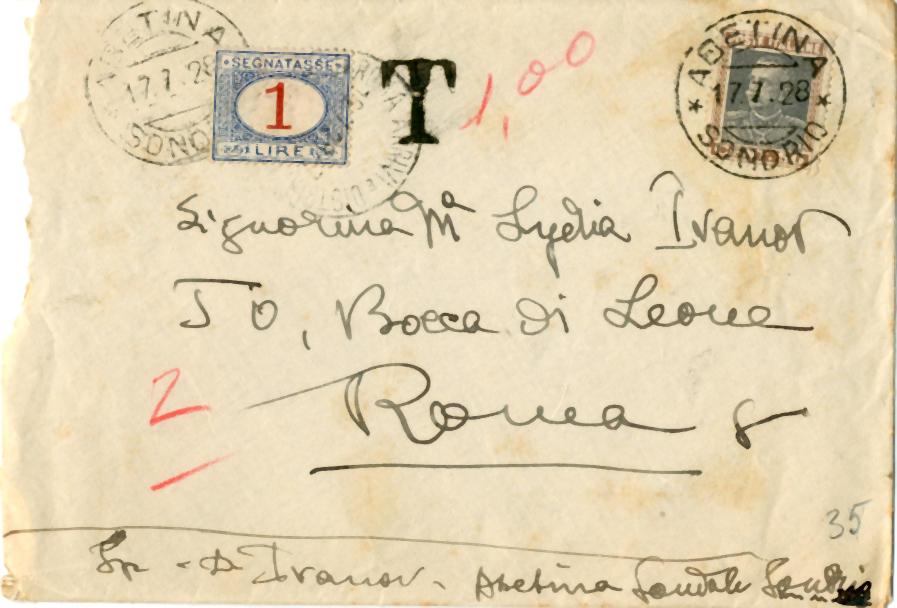 ABETINA
17.7.28
SONDRIO
SEGNATASSE
1
LIRE
T
1,00
ABETINA
17.7.28
SONDRIO
Signorina Mª Lydia Ivanov
50, Bocca di Leone
Roma 8
2
35
Sp. D. Ivanov - Abetina Sondalo Sondrio